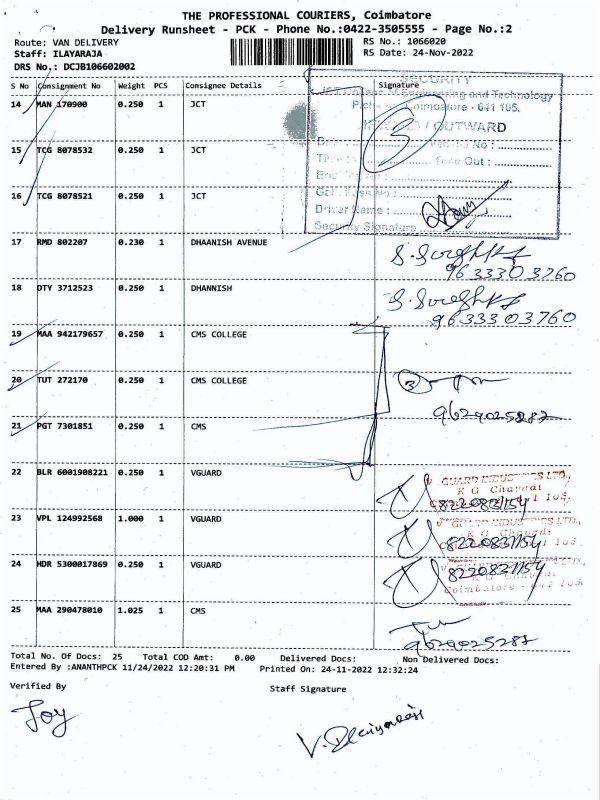 THE PROFESSIONAL COURIERS, Coimbatore
Delivery Runsheet - PCK - Phone No.:0422-3505555 - Page No.:2
Route: VAN DELIVERY
RS No.: 1066020
Staff: ILAYARAJA
RS Date: 24-Nov-2022
DRS No.: DCJB106602002
S No Consignment No Weight PCS Consignee Details Signature
SECURITY
of Engineering and Technology
Coimbatore - 641 105.
14 MAN 170900 0.250 1 JCT
/ OUTWARD
15 TCG 8078532 0.250 1 JCT
Time Out :
16 TCG 8078521 0.250 1 JCT
Driver Name :
Security Signature
17 RMD 802207 0.230 1 DHAANISH AVENUE
9633303760
18 DTY 3712523 0.250 1 DHANNISH
9633303760
19 MAA 942179657 0.250 1 CMS COLLEGE
20 TUT 272170 0.250 1 CMS COLLEGE
3
9629025287
21 PGT 7301851 0.250 1 CMS
22 BLR 6001908221 0.250 1 VGUARD
GUARD INDUS
K G Chavadi
8220831154
23 VPL 124992568 1.000 1 VGUARD
8220831154
24 HDR 5300017869 0.250 1 VGUARD
8220831154
Coimbatore
25 MAA 290478010 1.025 1 CMS
9629025287
Total No. Of Docs: 25 Total COD Amt: 0.00 Delivered Docs: Non Delivered Docs:
Entered By :ANANTHPCK 11/24/2022 12:20:31 PM Printed On: 24-11-2022 12:32:24
Verified By
Staff Signature
Joy